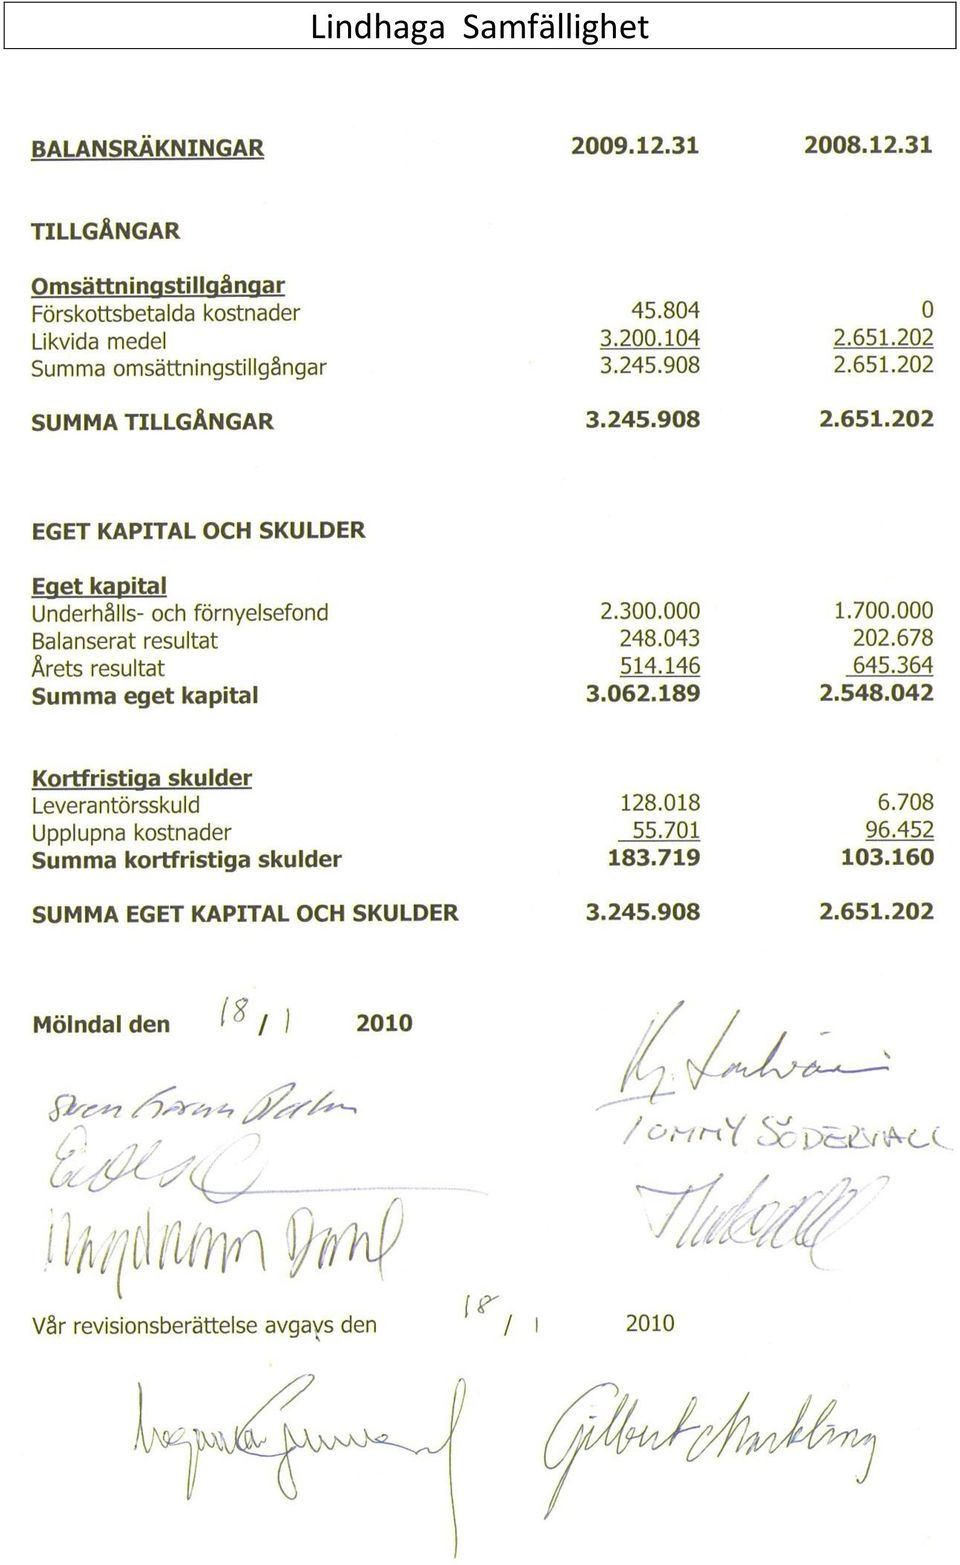 Lindhaga Samfällighet
BALANSRÄKNINGAR 2009.12.31 2008.12.31
TILLGÅNGAR
Omsättningstillgångar
Förskottsbetalda kostnader 45.804 0
Likvida medel 3.200.104 2.651.202
Summa omsättningstillgångar 3.245.908 2.651.202
SUMMA TILLGÅNGAR 3.245.908 2.651.202
EGET KAPITAL OCH SKULDER
Eget kapital
Underhålls- och förnyelsefond 2.300.000 1.700.000
Balanserat resultat 248.043 202.678
Årets resultat 514.146 645.364
Summa eget kapital 3.062.189 2.548.042
Kortfristiga skulder
Leverantörsskuld 128.018 6.708
Upplupna kostnader 55.701 96.452
Summa kortfristiga skulder 183.719 103.160
SUMMA EGET KAPITAL OCH SKULDER 3.245.908 2.651.202
Mölndal den 18 / 1 2010
Sven
TOMMY SÖDERVALL
Vår revisionsberättelse avgavs den 18 / 1 2010
Gilbert Markling